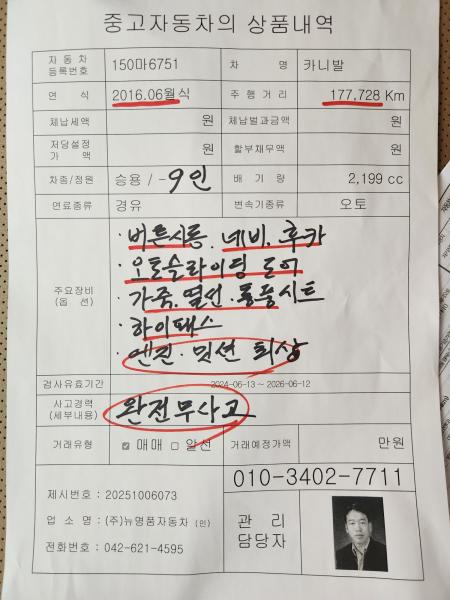 중고자동차의 상품내역
자 동 차 등록번호 150마6751 차 명 카니발
연 식 2016.06월식 주 행 거 리 177,728 Km
체납세액 원 체납벌과금액 원
저당설정 가 액 원 할부채무액 원
차종/정원 승용 / -9인 배 기 량 2,199 cc
연료종류 경유 변속기종류 오토
주요장비 (옵 션)
· 버튼시동. 네비. 후카
· 오토슬라이딩 도어
· 가죽. 열선. 통풍시트
· 하이패스
· 엔진. 밋션 최상
검사유효기간 2024-06-13 ~ 2026-06-12
사고경력 (세부내용) 완전무사고
거래유형 ☑ 매매 □ 알선 거래예정가액 만원
010-3402-7711
제시번호 : 20251006073
업 소 명 : (주)뉴명품자동차 (인)
전화번호 : 042-621-4595
관 리
담당자